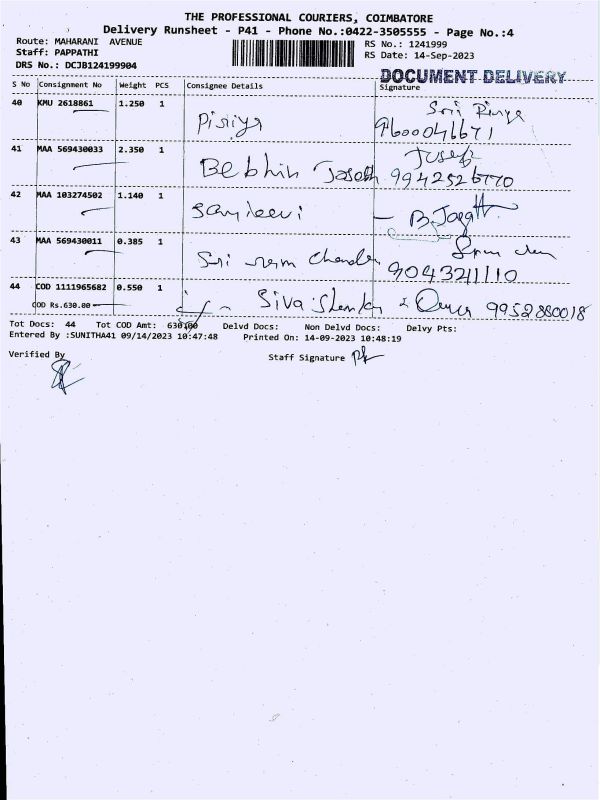 THE PROFESSIONAL COURIERS, COIMBATORE
Delivery Runsheet - P41 - Phone No.:0422-3505555 - Page No.:4
Route: MAHARANI AVENUE
Staff: PAPPATHI
DRS No.: DCJB124199904
RS No.: 1241999
RS Date: 14-Sep-2023
DOCUMENT DELIVERY
S No Consignment No Weight PCS Consignee Details Signature
40 KMU 2618861 1.250 1
9600041671
41 MAA 569430033 2.350 1
Bebhin Joseph 9942526770
42 MAA 103274502 1.140 1
Sanjeevi
43 MAA 569430011 0.385 1
Sri ram Chander
9043211110
44 COD 1111965682 0.550 1
COD Rs.630.00
9952880018
Tot Docs: 44 Tot COD Amt: 630.00 Delvd Docs: Non Delvd Docs: Delvy Pts:
Entered By :SUNITHA41 09/14/2023 10:47:48 Printed On: 14-09-2023 10:48:19
Verified By
Staff Signature